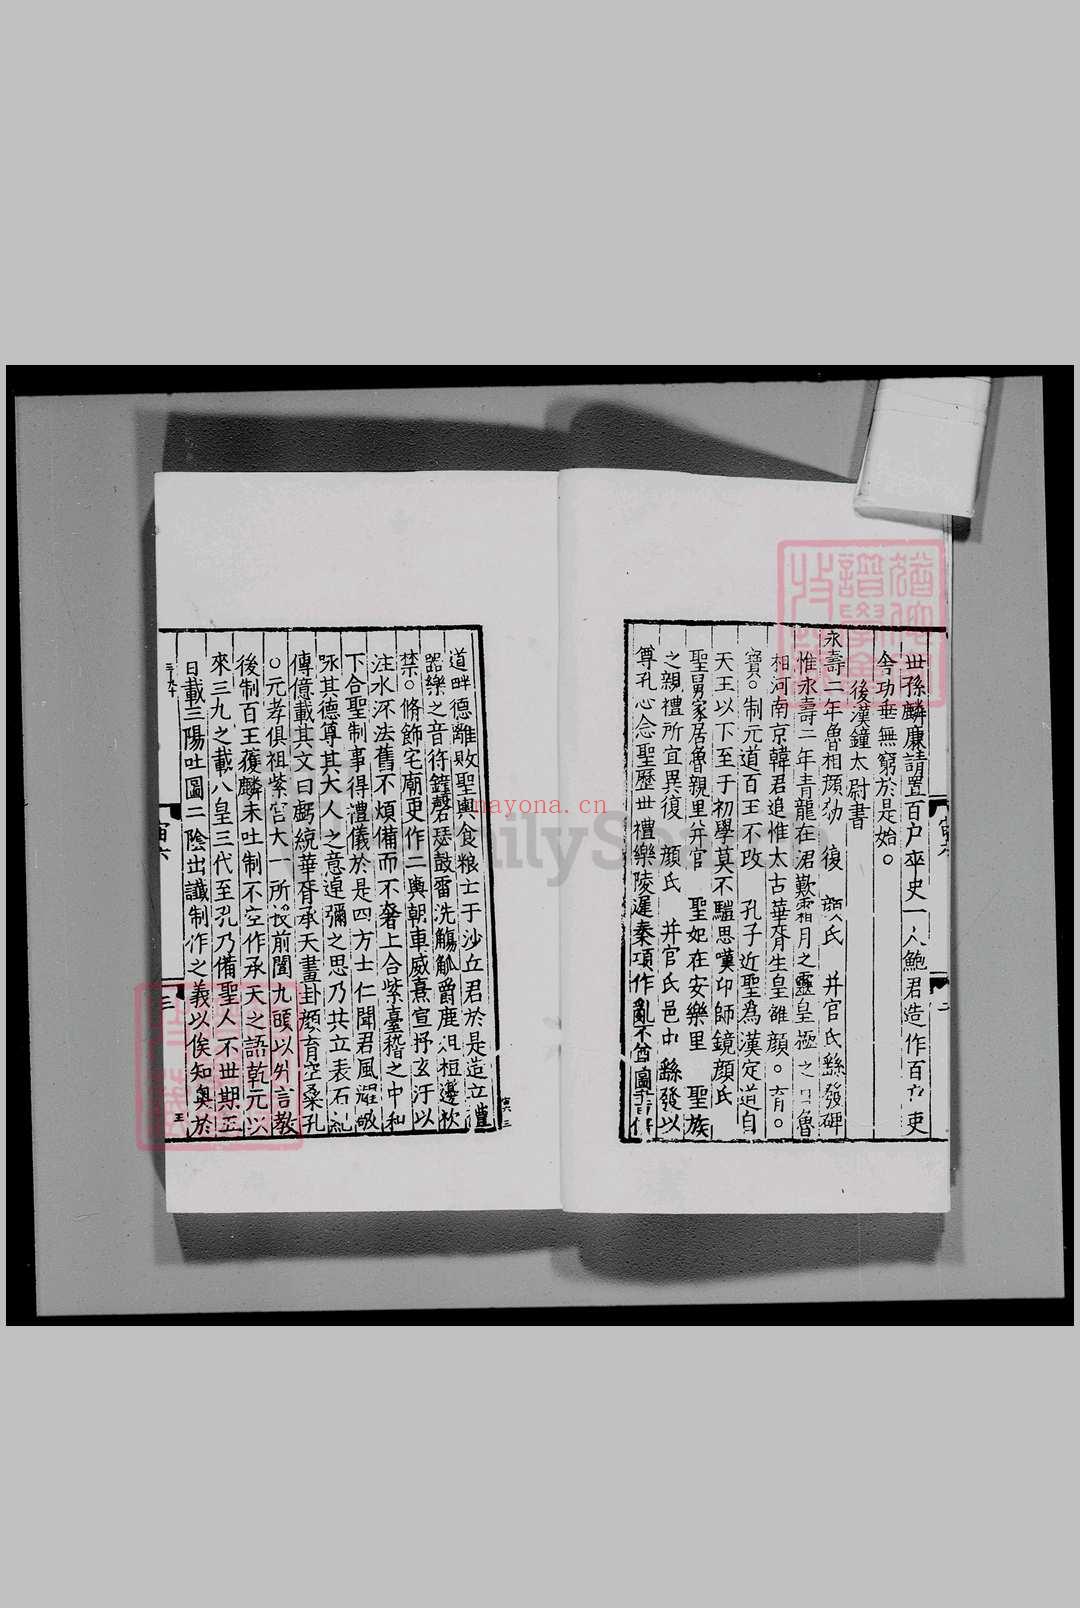 世孫麟廉請置百户卒史一人鮑君造作百户吏
舍功垂無窮於是始。
後漢鐘太尉書
永壽二年魯相顔勑 復 顔氏 并官氏繇發碑
惟永壽二年青龍在涒歎霜月之靈皇極之日魯
相河南京韓君追惟太古華胥生皇雄顔。育。
寶。制元道百王不改 孔子近聖爲漢定道自
天王以下至于初學莫不騩思嘆卬師鏡顔氏
聖舅家居魯親里并官 聖妃在安樂里 聖族
之親禮所宜異復 顔氏 并官氏邑中繇發以
尊孔心念聖歷世禮樂陵遲秦項作亂不尊圖書倍
寅六
二
道畔德離敗聖輿食粮士于沙丘君於是造立禮
器樂之音符鐘磬瑟鼓雷洗觴觚爵鹿柤梪籩柉
禁。脩飾宅廟更作二輿朝車威熹宣抒玄汙以
注水沠法舊不煩備而不奢上合紫臺稽之中和
下合聖制事得禮儀於是四方士仁聞君風燿敬
咏其德尊其大人之意逴彌之思乃共立表石紀
傳億載其文曰戲統華胥承天畫卦顔育空桑孔
○元孝俱祖紫宫大一所授前闓九頭以外言教
後制百王獲麟未吐制不空作承天之語乾元以
來三九之載八皇三代至孔乃備聖人不世期五
百載三陽吐圖二陰出讖制作之義以俟知奥於
寅六
三
nayona.cn
FamilySearch